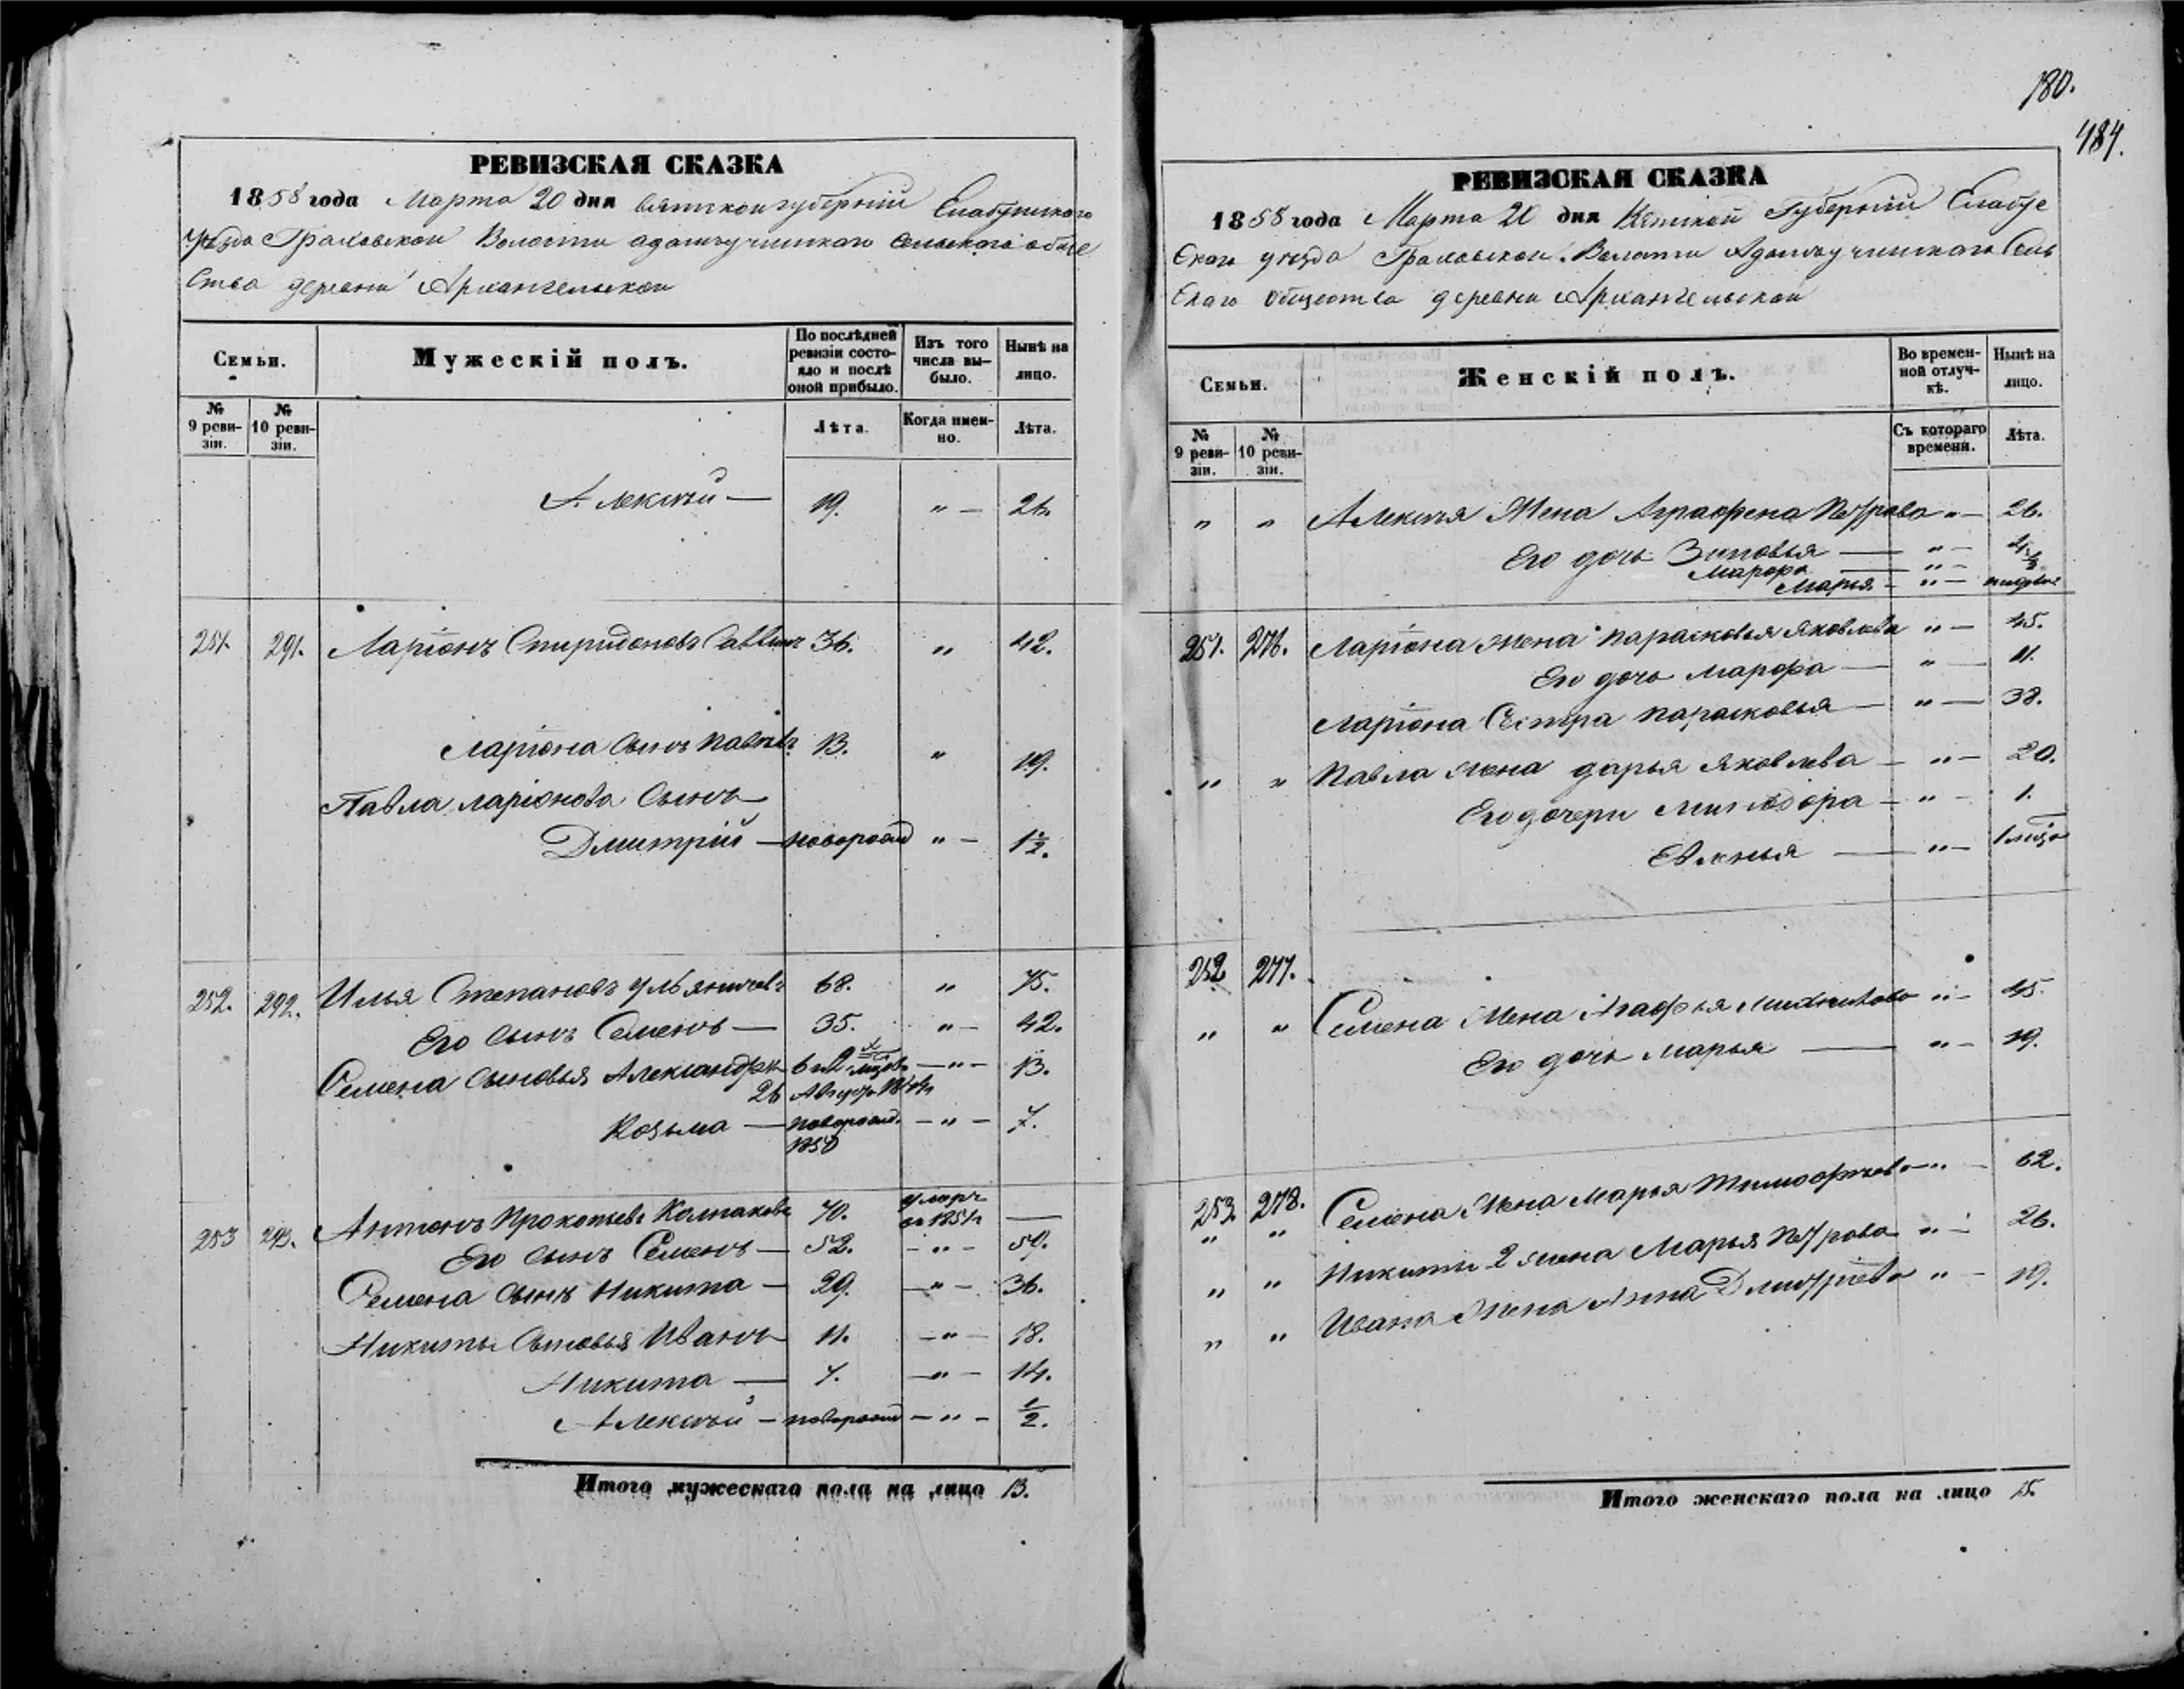 РЕВИЗСКАЯ СКАЗКА
1858 года Марта 20 дня Вятской губерніи Елабужскаго
Уѣзда Граховской Волости адамъучинскаго сельскаго обще
ства деревни Архангельской
Семьи.
Мужескій полъ.
По послѣдней ревизіи состояло и послѣ оной прибыло.
Изъ того числа выбыло.
Нынѣ на лицо.
№ 9 ревизіи.
№ 10 ревизіи.
Лѣта.
Когда именно.
Лѣта.
Алексѣй — 19. " — 26.
251. 291. Ларіонъ Спиридоновъ Саввинъ 36. " 42.
Ларіона Сынъ Павелъ 13. " 19.
Павла ларіонова Сынъ
Дмитрій — новорожд " — 1½.
252. 292. Илья Степановъ 68. " 75.
Его Сынъ Семенъ — 35. " — 42.
Семена Сыновья Александръ 6 — " — 13.
26
Козьма — новорожд. — " — 7.
1850
253 293. Антонъ Прокопьевъ Колпаковъ 70. умеръ въ 1851г —
Его Сынъ Семенъ — 52. — " — 59.
Семена Сынъ Никита — 29. — " — 36.
Никиты Сыновья Иванъ 11. — " — 18.
Никита — 7. — " — 14.
Алексѣй — новорожд — " — ½.
Итого мужескаго пола на лицо 13.
180.
484.
РЕВИЗСКАЯ СКАЗКА
1858 года Марта 20 дня Вятской Губерніи Елабуж
скаго уѣзда Граховской Волости Адамъучинскаго Сель
скаго общества деревни Архангельской
Семьи.
Женскій полъ.
Во временной отлучкѣ.
Нынѣ на лицо.
№ 9 ревизіи.
№ 10 ревизіи.
Съ котораго времени.
Лѣта.
" " Алексѣя Жена Аграфена Петрова " — 26.
Его дочь Зиновья — " —
Марфа — " —
Марья — " —
251. 276. Ларіона жена парасковья Яковлева " — 45.
Его дочь марфа — " — 11.
Ларіона Сестра парасковья — " — 38.
" " Павла жена дарья Яковлева — " — 20.
Его дочери — " — 1.
Евгенья — " —
252 277.
" " Семена Жена Агафья " — 45.
Его дочь Марья — " — 19.
253. 278. Семена Жена Марья Тимофеева — " — 62.
" " Никиты 2 жена Марья Петрова " — 26.
" " Ивана Жена Анна Дмитріева " — 19.
Итого женскаго пола на лицо 15.